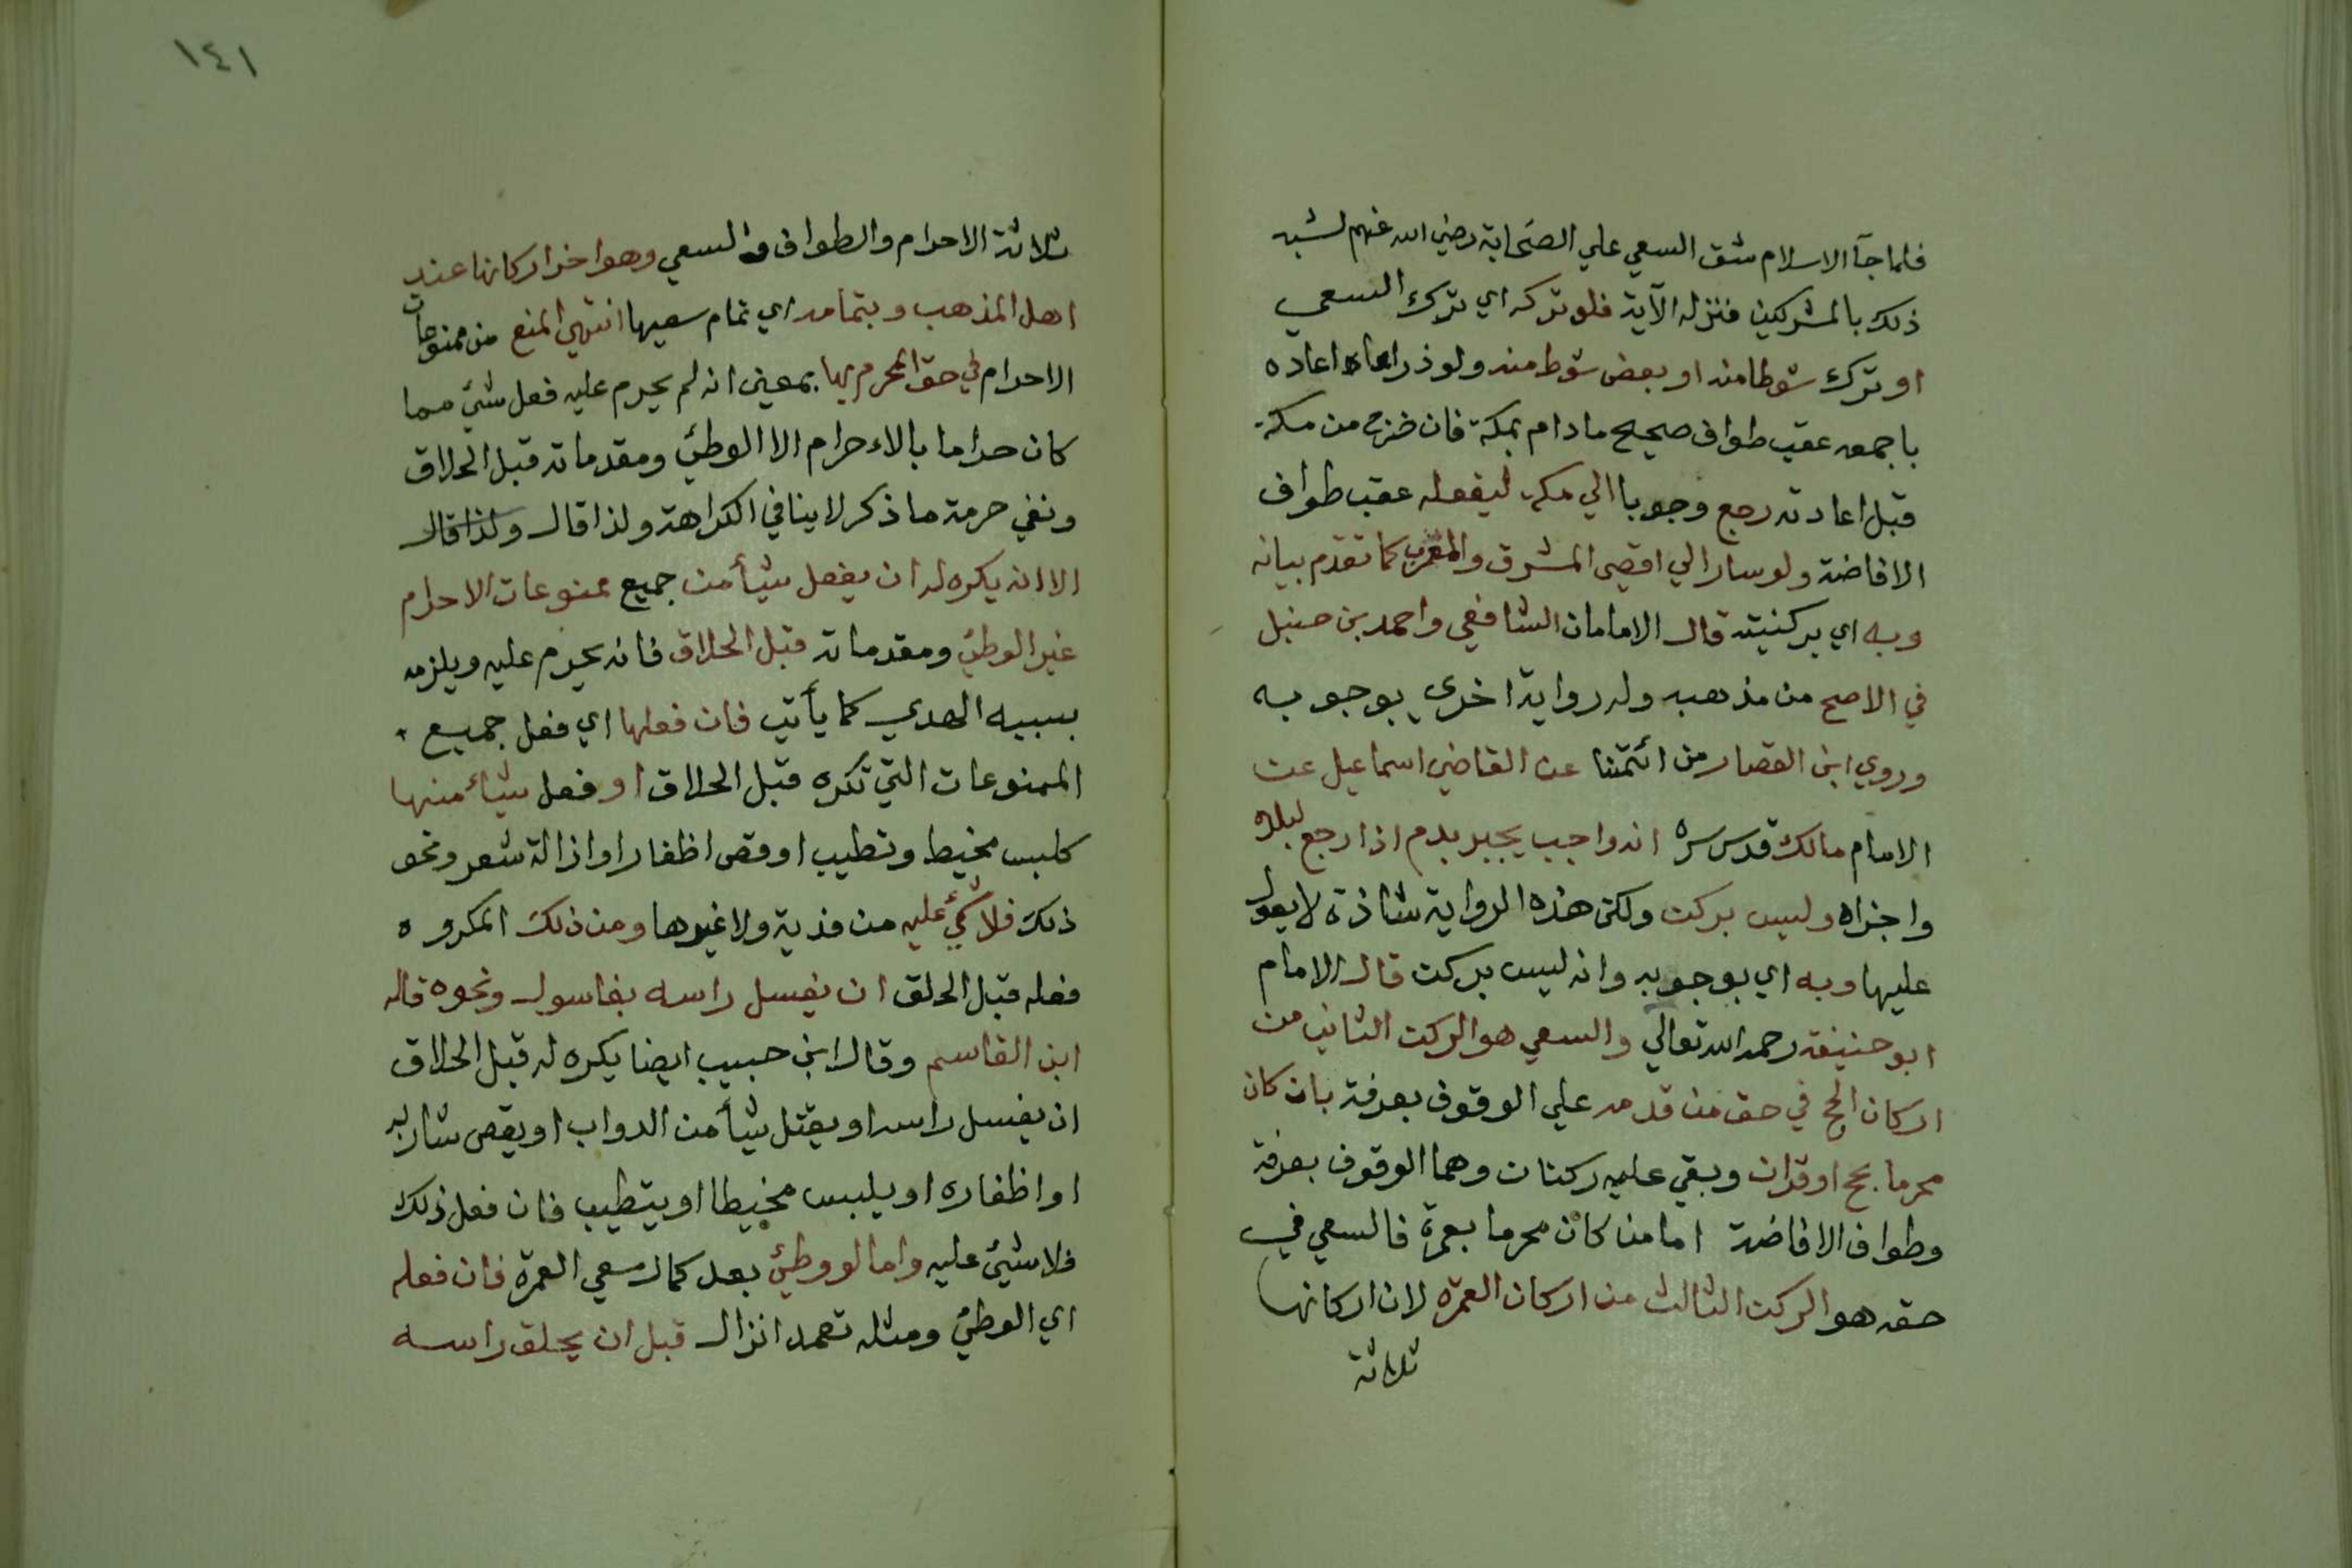 فلما جآ الاسلام شق السعي علي الصحابة رضي الله عنهم لشبه
ذلك بالمشركين فنزله الآية فلو تركه اي ترك السعي
او ترك شوطا منه او بعض شوط منه ولو ذراعاه اعاده
باجمعه عقب طواف صحيح ما دام بمكة فان خرج من مكة
قبل اعادته رجع وجوبا الي مكة ليفعله عقب طواف
الافاضة ولو سار الي اقصي المشرق والمغرب كما تقدم بيانه
وبه اي بركنيته قال الامامان الشافعي واحمد بن حنبل
في الاصح من مذهبه وله رواية اخري بوجوبه
وروي ابن القصار من ائمتنا عن القاضي اسماعيل عن
الامام مالك قدس سره انه واجب يجبر بدم اذا رجع لبلده
واجزاه وليس بركن ولكن هذه الرواية شاذة لا يعول
عليها وبه اي بوجوبه وانه ليس بركن قال الامام
ابو حنيفة رحمه الله تعالي والسعي هو الركن الثاني من
اركان الحج في حق من قدمه علي الوقوف بعرفة بان كان
محرما بحج او قران وبقي عليه ركنان وهما الوقوف بعرفة
وطواف الافاضة اما من كان محرما بعمرة فالسعي في
حقه هو الركن الثالث من اركان العمرة لان اركانها
ثلاثة
١٤١
ثلاثة الاحرام والطواف والسعي وهو اخر اركانها عند
اهل المذهب وبتمامه اي تمام سعيها انتهي المنع من ممنوعات
الاحرام في حق المحرم بها بمعني انه لم يحرم عليه فعل شيئ مما
كان حراما بالاءحرام الا الوطئ ومقدماته قبل الحلاق
ونفي حرمة ما ذكر لا ينافي الكراهة ولذا قال ولذا قال
الا انه يكره له ان يفعل شيأ من جميع ممنوعات الاحرام
غير الوطئ ومقدماته قبل الحلاق فانه يحرم عليه ويلزمه
بسببه الهدي كما يأتي فان فعلها اي فعل جميع
الممنوعات التي تكره قبل الحلاق او فعل شيأ منها
كلبس مخيط وتطيب او قص اظفار او ازالة شعر ونحو
ذلك فلا شيئ عليه من فدية ولا غيرها ومن ذلك المكروه
فعله قبل الحلق ان يغسل راسه بغاسول ونحوه قاله
ابن القاسم وقال ابن حبيب ايضا يكره له قبل الحلاق
ان يغسل راسه او يقتل شيأ من الدواب او يقص شاربه
او اظفاره او يلبس مخيطا او يتطيب فان فعل ذلك
فلا شيئ عليه واما لو وطئ بعد كمال سعي العمرة فان فعله
اي الوطئ ومثله تعمد انزال قبل ان يحلق راسه